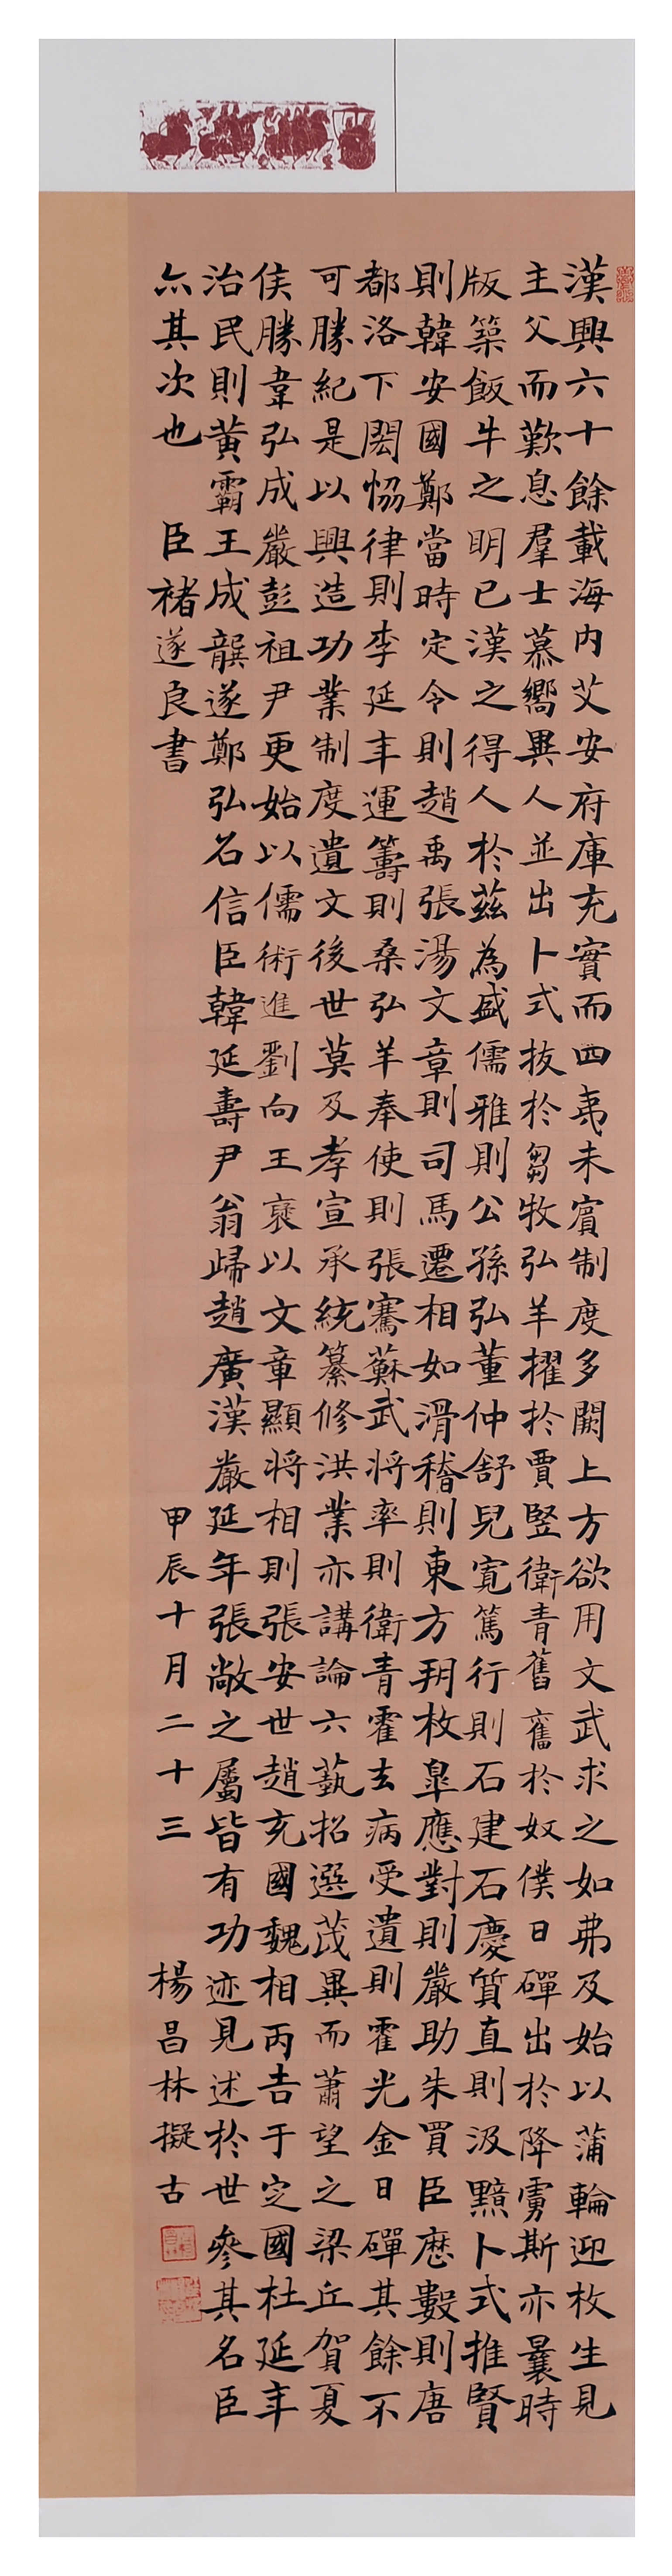 漢興六十餘載海内艾安府庫充實而四夷未賓制度多闕上方欲用文武求之如弗及始以蒲輪迎枚生見
主父而歎息羣士慕嚮異人並出卜式拔於芻牧弘羊擢於賈竪衛青舊奮於奴僕日磾出於降虜斯亦曩時
版築飯牛之明已漢之得人於茲為盛儒雅則公孫弘董仲舒兒寬篤行則石建石慶質直則汲黯卜式推賢
則韓安國鄭當時定令則趙禹張湯文章則司馬遷相如滑稽則東方朔枚皐應對則嚴助朱買臣歷數則唐
都洛下閎恊律則李延年運籌則桑弘羊奉使則張騫蘇武將率則衛青霍去病受遺則霍光金日磾其餘不
可勝紀是以興造功業制度遺文後世莫及孝宣承統纂修洪業亦講論六藝招選茂異而蕭望之梁丘賀夏
侯勝韋弘成嚴彭祖尹更始以儒術進劉向王褒以文章顯將相則張安世趙充國魏相丙吉于定國杜延年
治民則黃霸王成龔遂鄭弘召信臣韓延壽尹翁歸趙廣漢嚴延年張敞之屬皆有功迹見述於世參其名臣
亦其次也 臣褚遂良書 甲辰十月二十三 楊昌林擬古